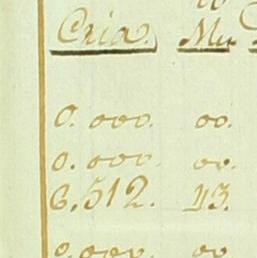 Cria. Mu
0.000. 00.
0.000. 00.
6.512. 43.
0.000. 00